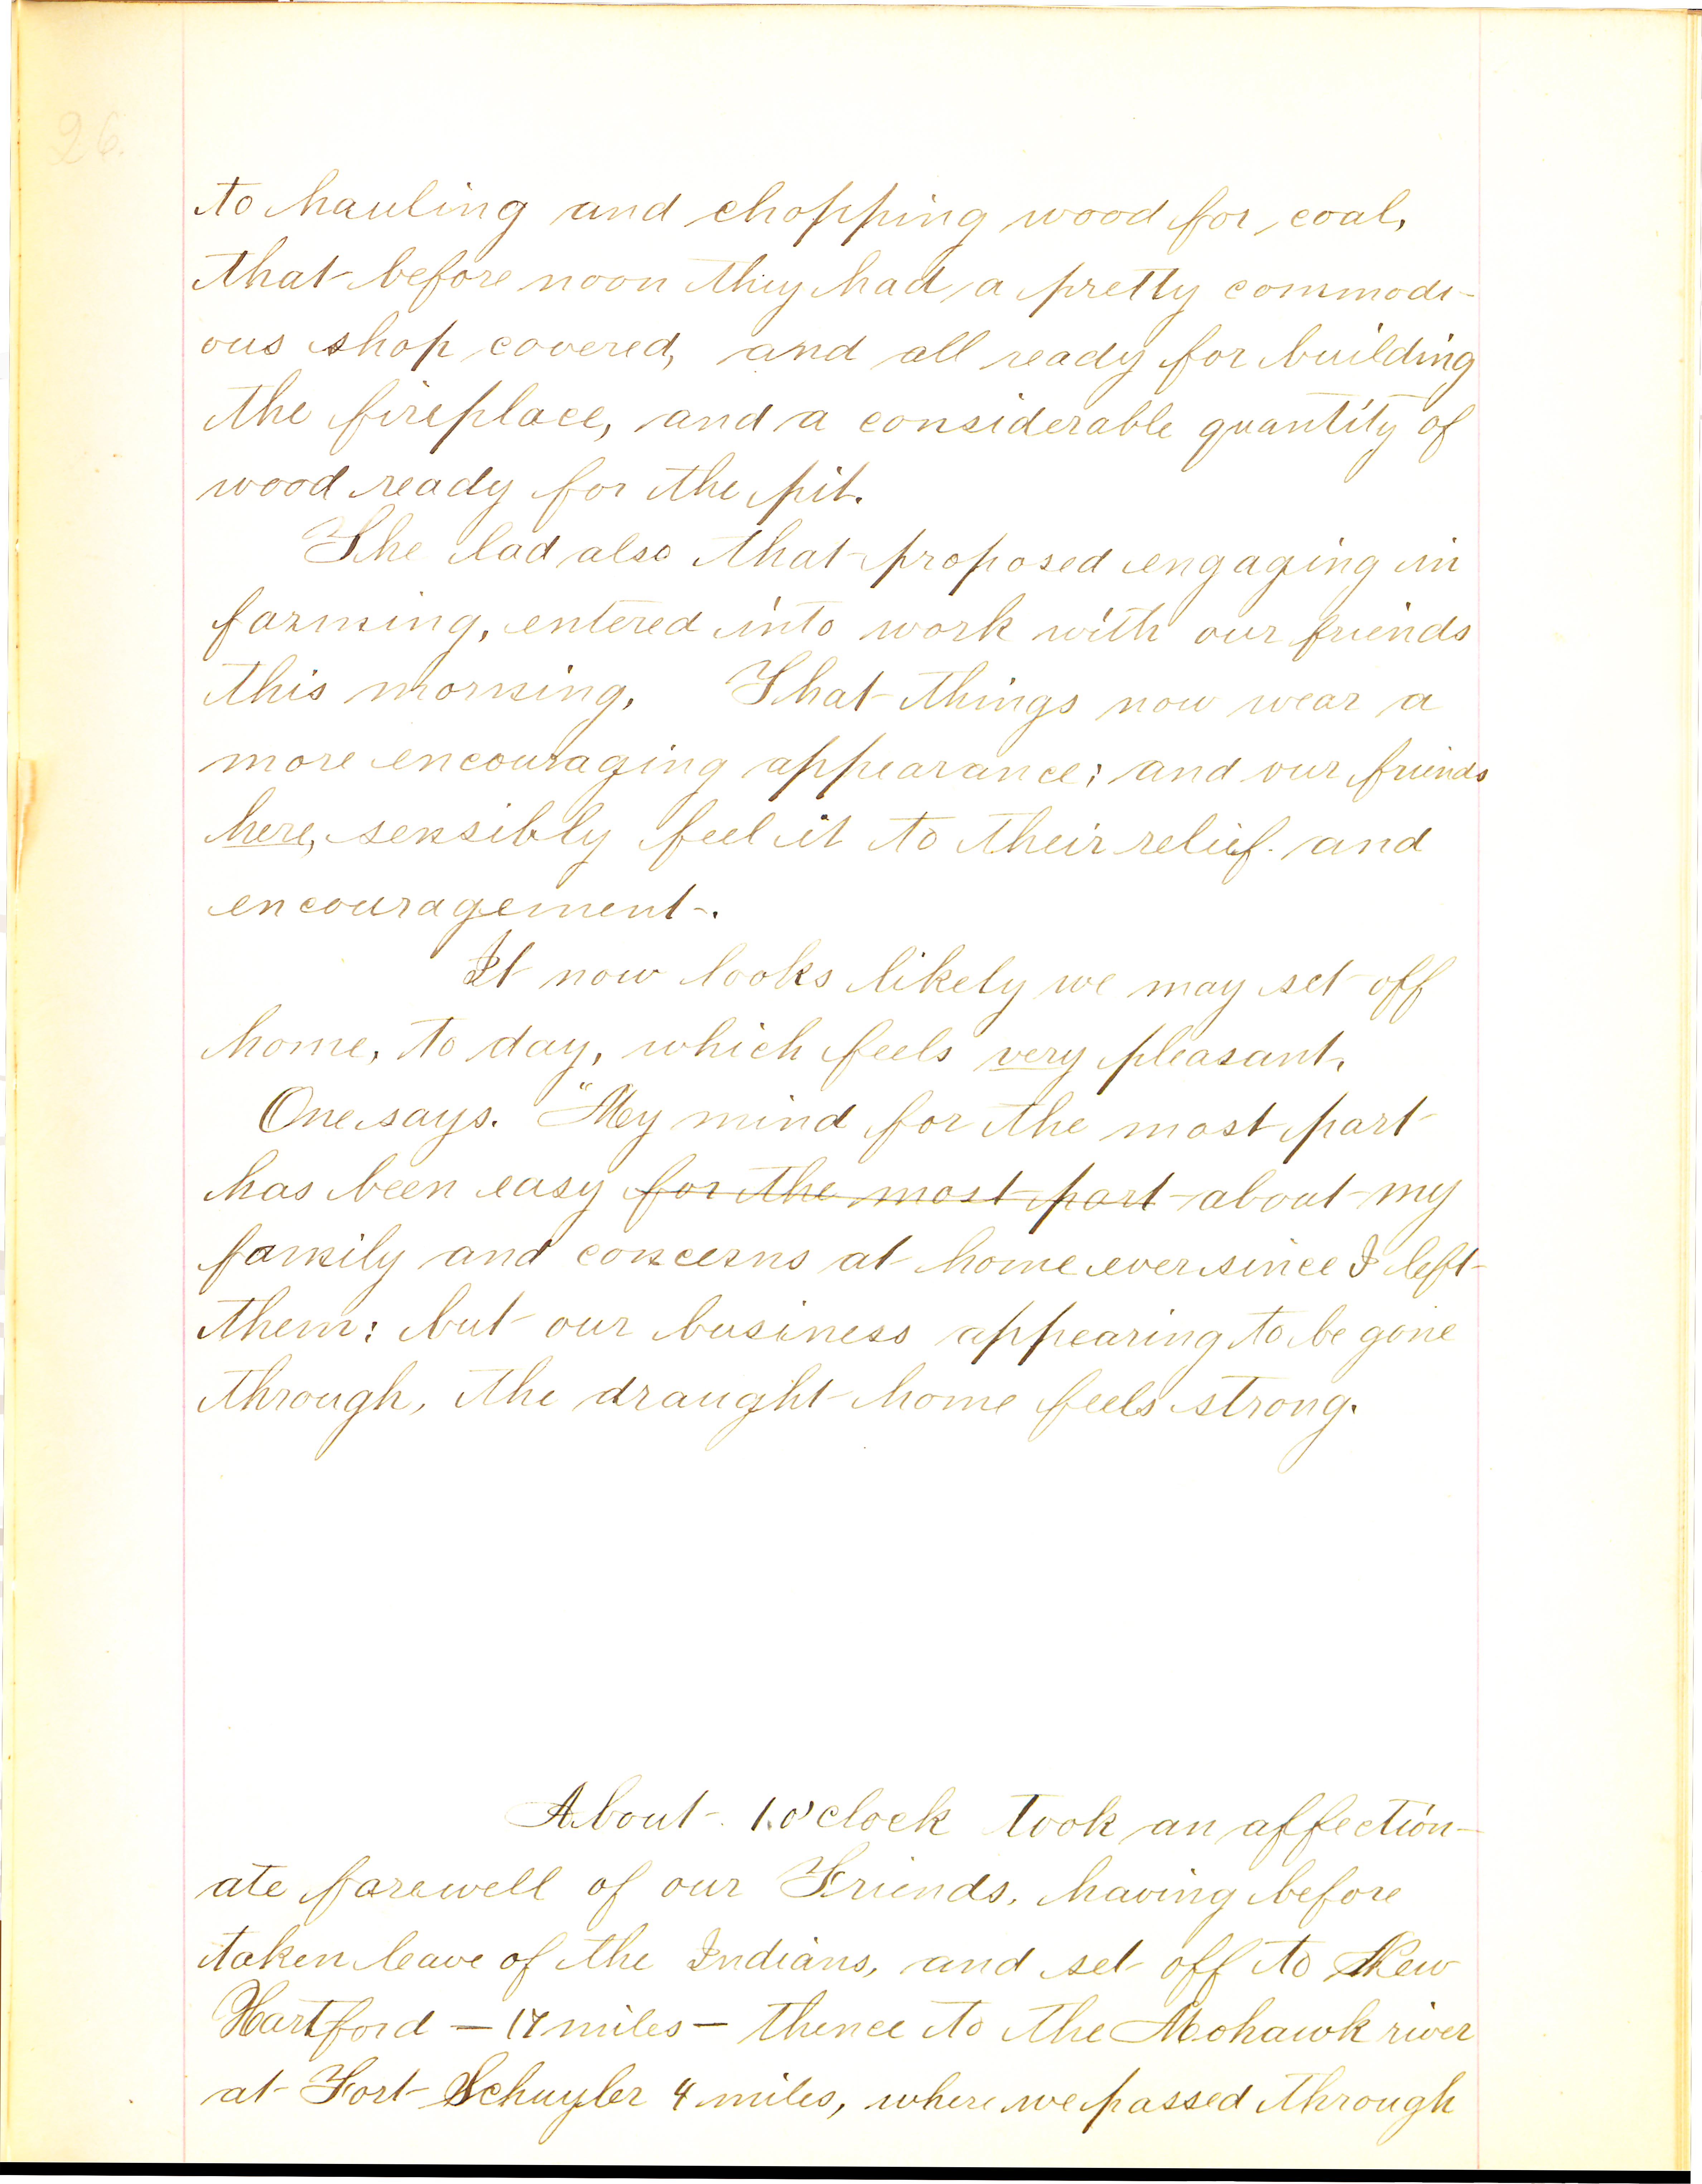 26.
to hauling and chopping wood for coal,
that before noon they had a pretty commodi-
ous shop covered, and all ready for building
the fireplace, and a considerable quantity of
wood ready for the pit.
The lad also that proposed engaging in
farming, entered into work with our friends
this morning. That things now wear a
more encouraging appearance; and our friends
here, sensibly feel it to their relief and
encouragement.
It now looks likely we may set off
home, to day, which feels very pleasant.
One says. "My mind for the most part
has been easy for the most part about my
family and concerns at home ever since I left
them: but our business appearing to be gone
through, the draught home feels strong.
About 1 o'clock took an affection-
ate farewell of our Friends, having before
taken leave of the Indians, and set off to New
Hartford — 17 miles — thence to the Mohawk river
at Fort Schuyler 4 miles, where we passed through